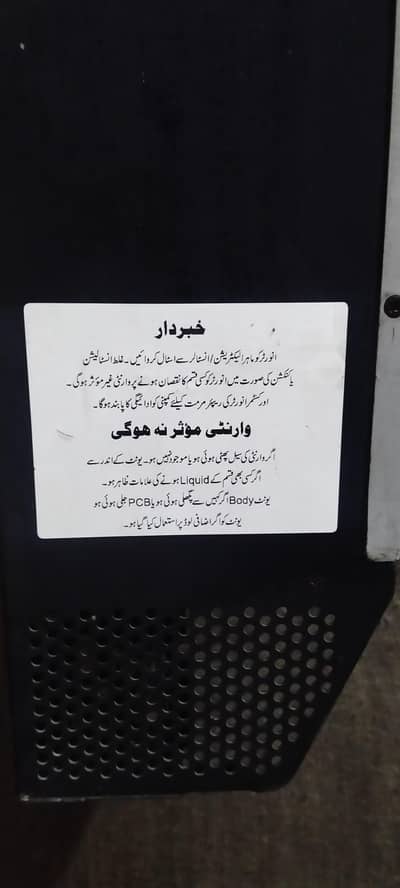 خبردار
انورٹر کو ماہر الیکٹریشن/انسٹالر سے انسٹال کروائیں۔ غلط انسٹالیشن
یا کنکشن کی صورت میں انورٹر کو کسی قسم کا نقصان ہونے پر وارنٹی غیر مؤثر ہوگی۔
اور کسٹمر انورٹر کی ریپئر مرمت کیلئے کمپنی کو ادائیگی کا پابند ہوگا۔
وارنٹی مؤثر نہ ہوگی
اگر وارنٹی کی سیل پھٹی ہوئی ہو یا موجود نہیں ہو۔ یونٹ کے اندر سے
اگر کسی بھی قسم کے Liquid ہونے کی علامات ظاہر ہو۔
یونٹ Body اگر کہیں سے پگھلی ہوئی ہو یا PCB جلی ہوئی ہو
یونٹ کو اگر اضافی لوڈ پر استعمال کیا گیا ہو۔